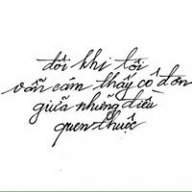 đôi khi tôi
vẫn cảm thấy cô đơn
giữa những điều
quen thuộc